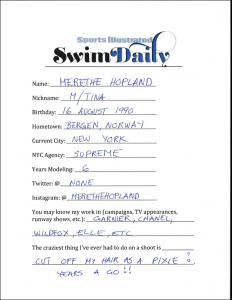 Sports Illustrated
SwimDaily
Name: MERETHE HOPLAND
Nickname: M/TINA
Birthday: 16 AUGUST 1990
Hometown: BERGEN, NORWAY
Current City: NEW YORK
NYC Agency: SUPREME
Years Modeling: 6
Twitter: @ NONE
Instagram: @ MERETHEHOPLAND
You may know my work in (campaigns, TV appearances,
runway shows, etc.): GARNIER, CHANEL,
WILDFOX, ELLE, ETC
The craziest thing I've ever had to do on a shoot is
CUT OFF MY HAIR AS A PIXIE ?
YEARS AGO!!